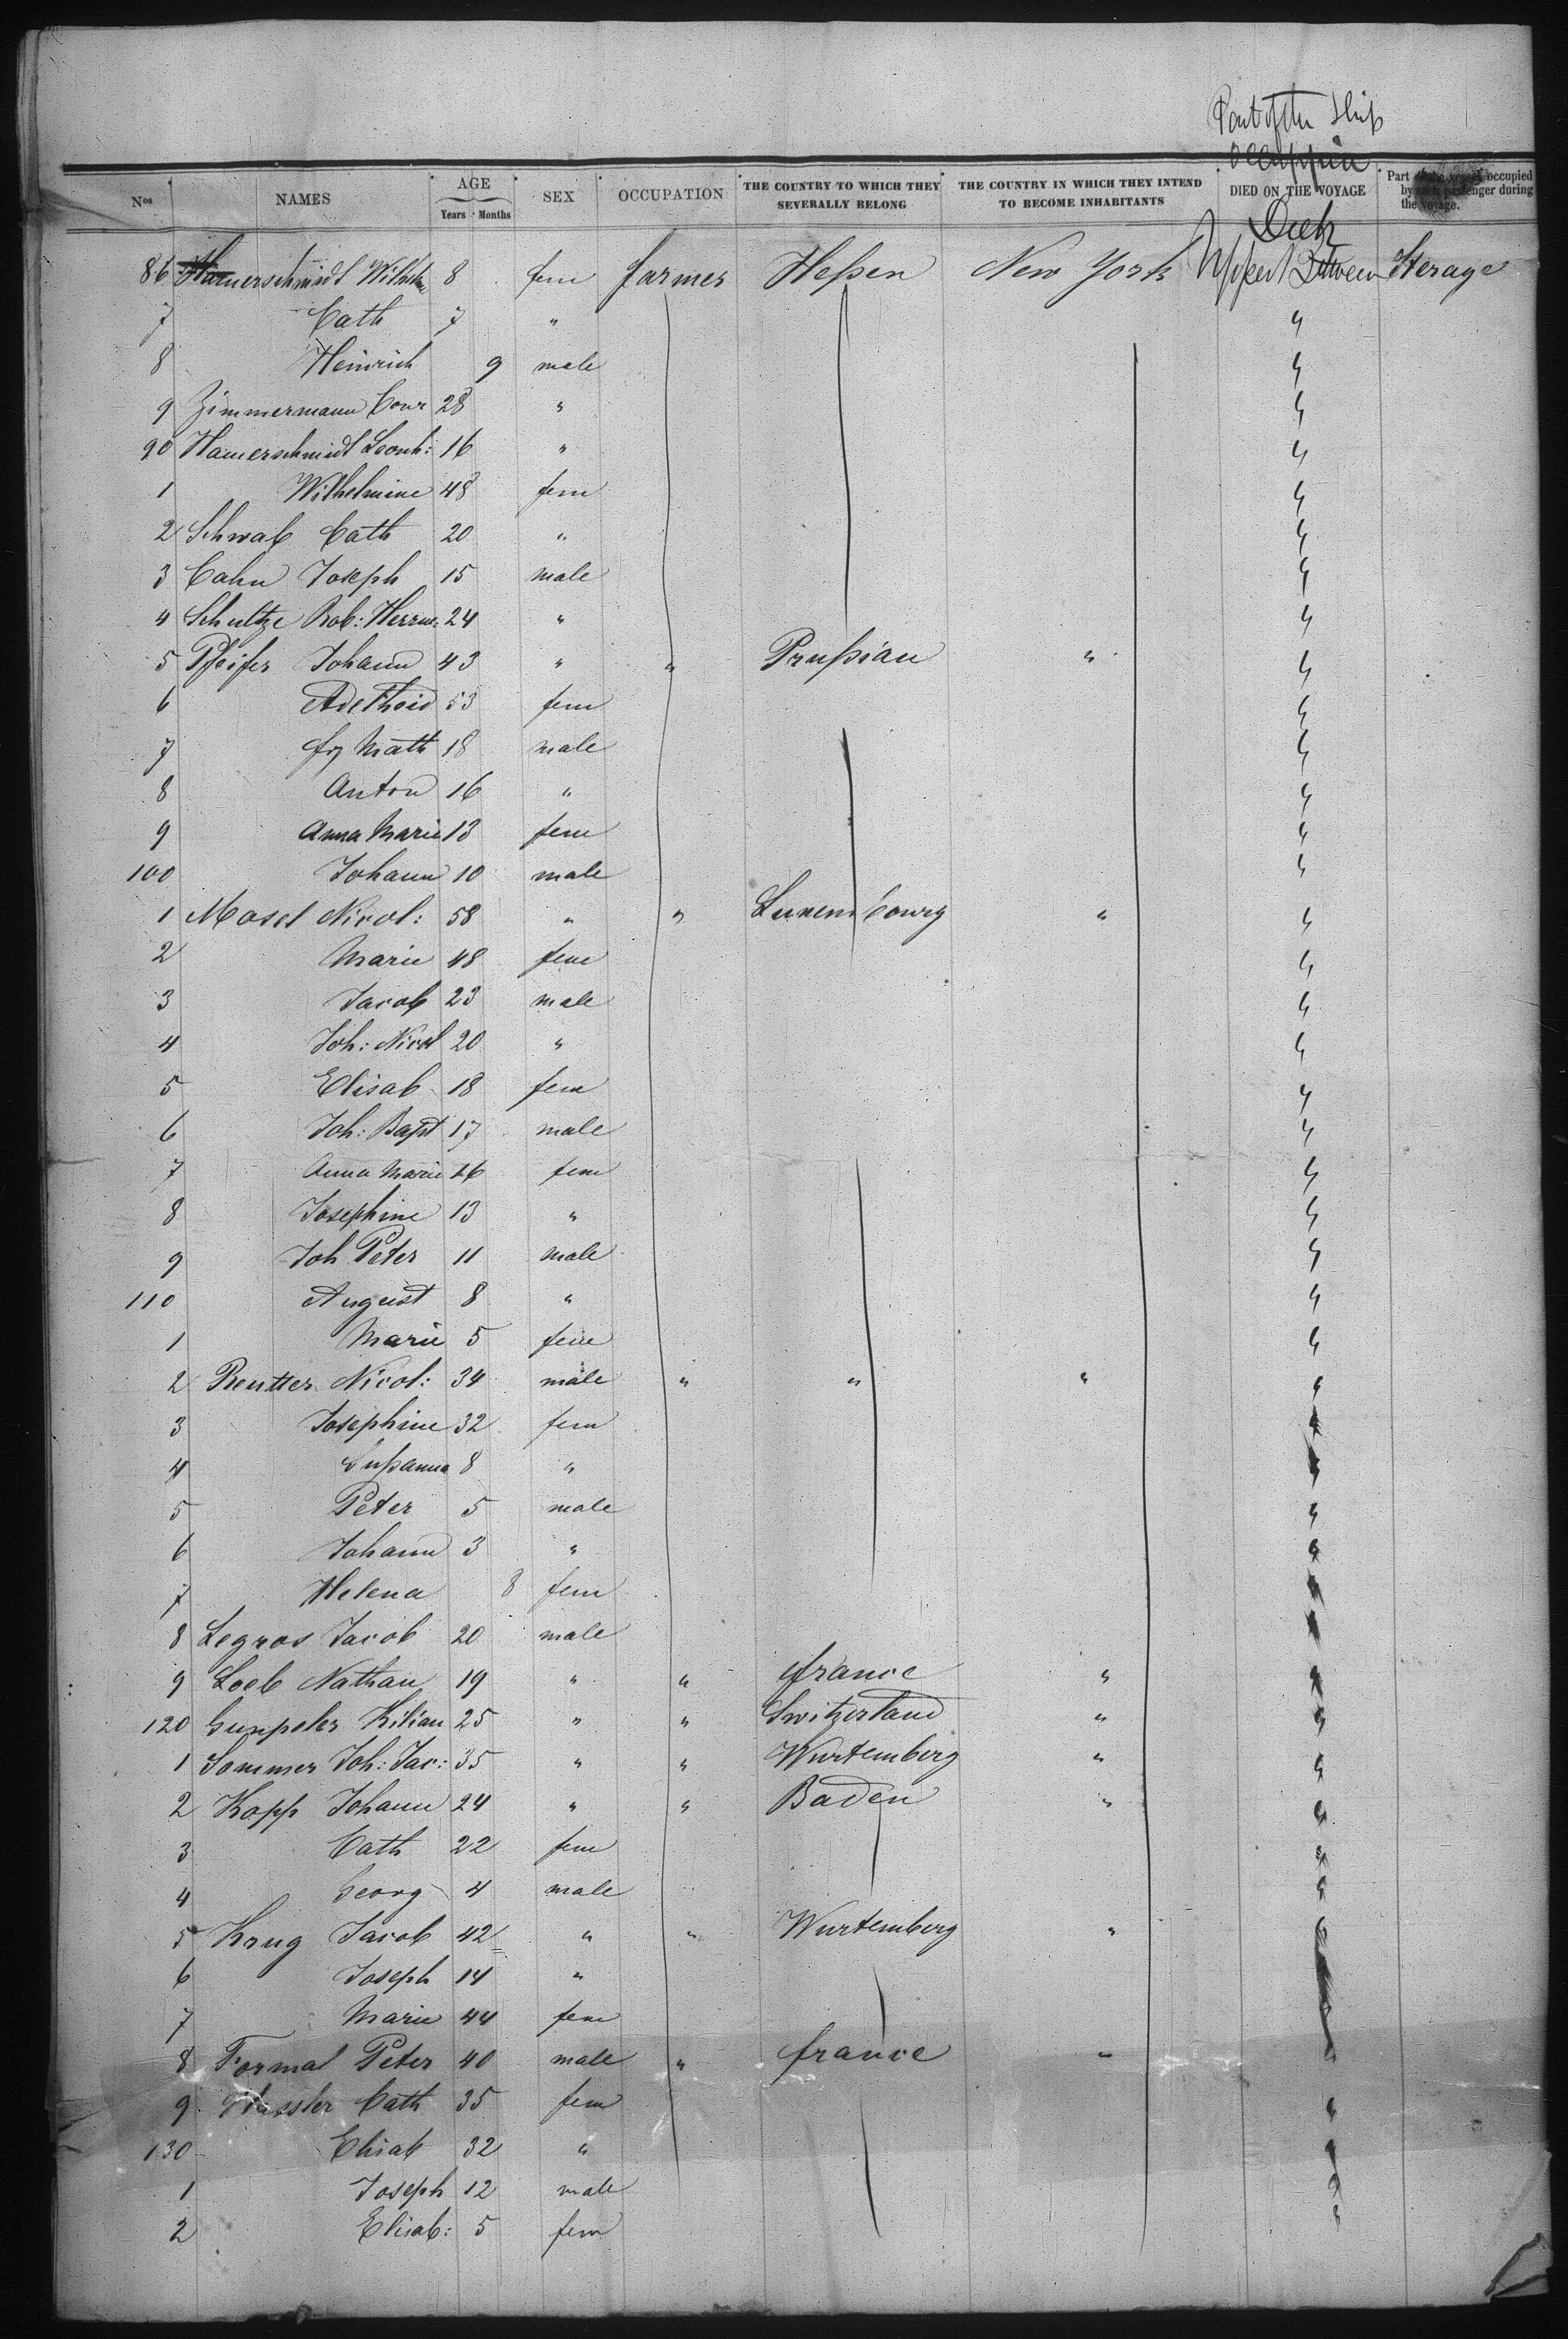 Part of the Ship
occuppied
Nos NAMES AGE Years Months SEX OCCUPATION THE COUNTRY TO WHICH THEY SEVERALLY BELONG THE COUNTRY IN WHICH THEY INTEND TO BECOME INHABITANTS DIED ON THE VOYAGE Part of the vessel occupied by each passenger during the voyage.
Deck
86 Hamerschmidt Wilhelm 8 fem farmer Heßen New York Upper Between Sterage
7 Cath 7 " "
8 Heinrich 9 male "
9 Zimmermann Conr 28 " "
90 Hamerschmidt Leonh: 16 " "
1 Wilhelmine 48 fem "
2 Schwab Cath 20 " "
3 Cahn Joseph 15 male "
4 Schultze Rob: Herrm: 24 " "
5 Pfeifer Johann 43 " " Prußian " "
6 Adelheid 53 fem "
7 Math 18 male "
8 Anton 16 " "
9 Anna Marie 13 fem "
100 Johann 10 male "
1 Mosel Nicol: 58 " " Luxembourg " "
2 Marie 48 fem "
3 Jacob 23 male "
4 Joh: Nicol 20 " "
5 Elisab 18 fem "
6 Joh: Bapt 17 male "
7 Anna Marie 26 fem "
8 Josephine 13 " "
9 Joh Peter 11 male "
110 August 8 " "
1 Marie 5 fem "
2 Reutter Nicol: 34 male " " " "
3 Josephine 32 fem "
4 Sußanna 8 " "
5 Peter 5 male "
6 Johann 3 " "
7 Helena 8 fem "
8 Legros Jacob 20 male "
9 Loeb Nathan 19 " " france " "
120 Gunpeler Kilian 25 " " Switzerland " "
1 Sommer Joh: Jac: 35 " " Wurtemberg " "
2 Kopp Johann 24 " " Baden " "
3 Cath 22 fem "
4 Georg 4 male "
5 Krug Jacob 42 " " Wurtemberg " "
6 Joseph 14 "
7 Marie 44 fem
8 Formal Peter 40 male " france " "
9 Cath 35 fem "
130 Elisab 32 " "
1 Joseph 12 male "
2 Elisab: 5 fem "